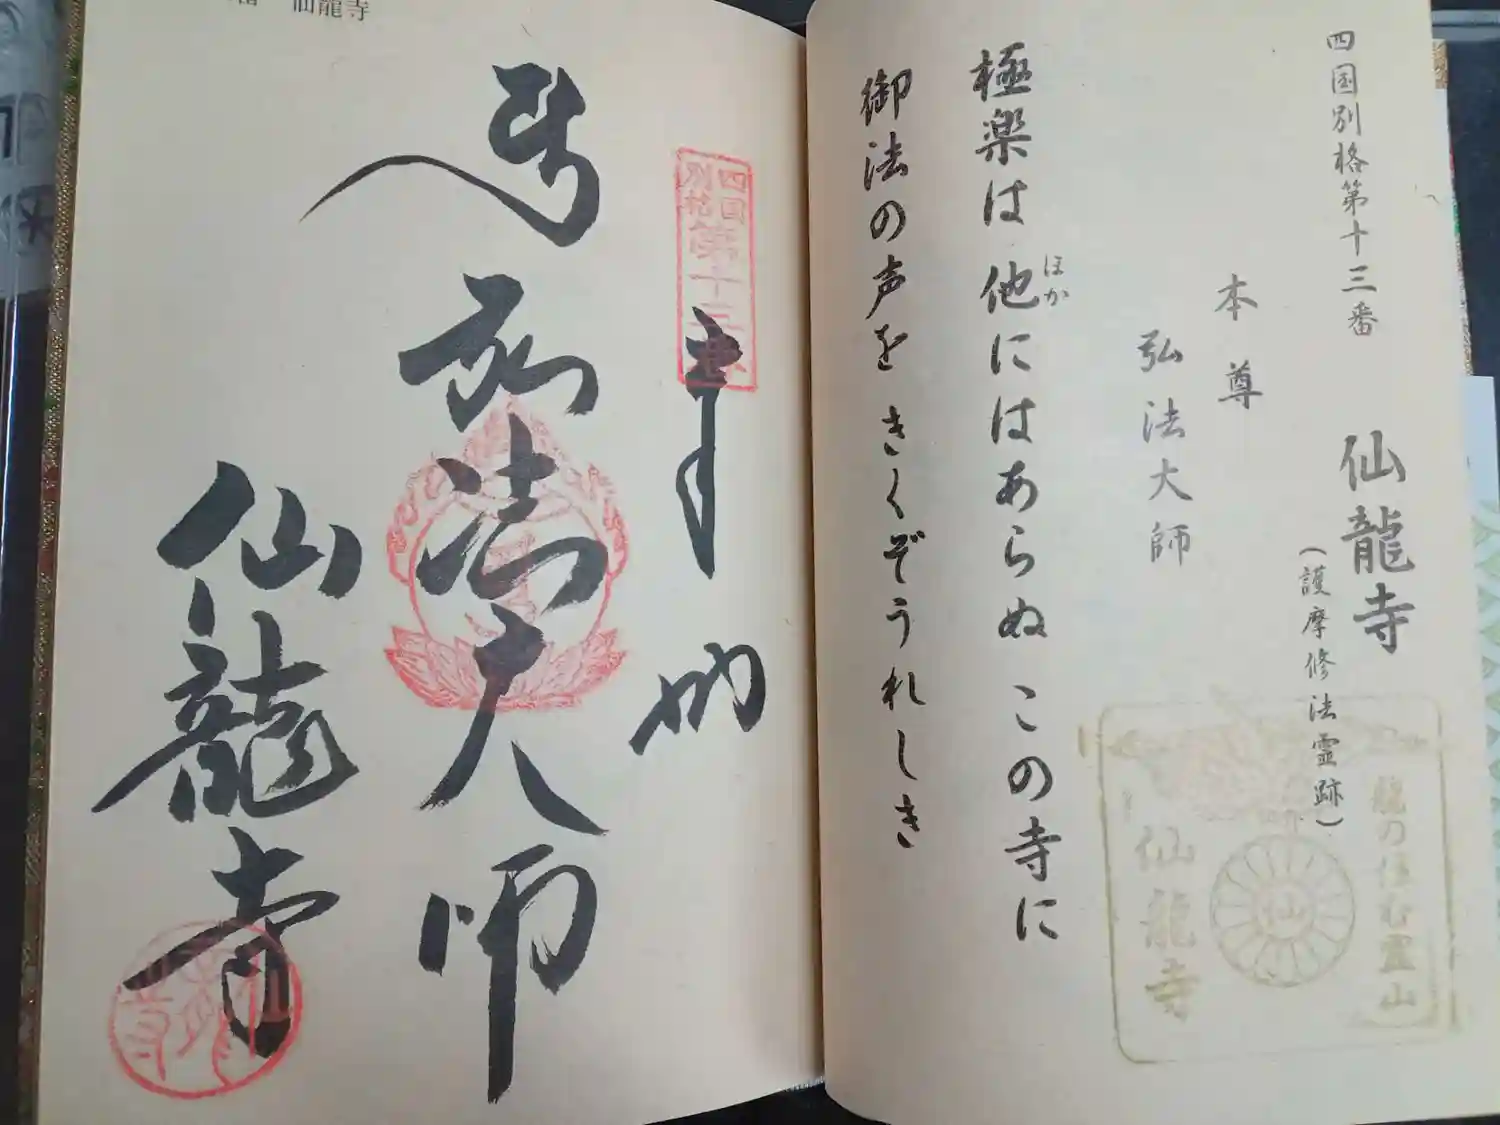 四国別格第十三番
仙龍寺
(護摩修法霊跡)
本尊
弘法大師
極楽は他にはあらぬこの寺に
ほか
御法の声をきくぞうれしき
龍の住む霊山
仙
仙龍寺
四国
別格
第十三番
奉
弘法大師
仙龍寺
仙龍寺